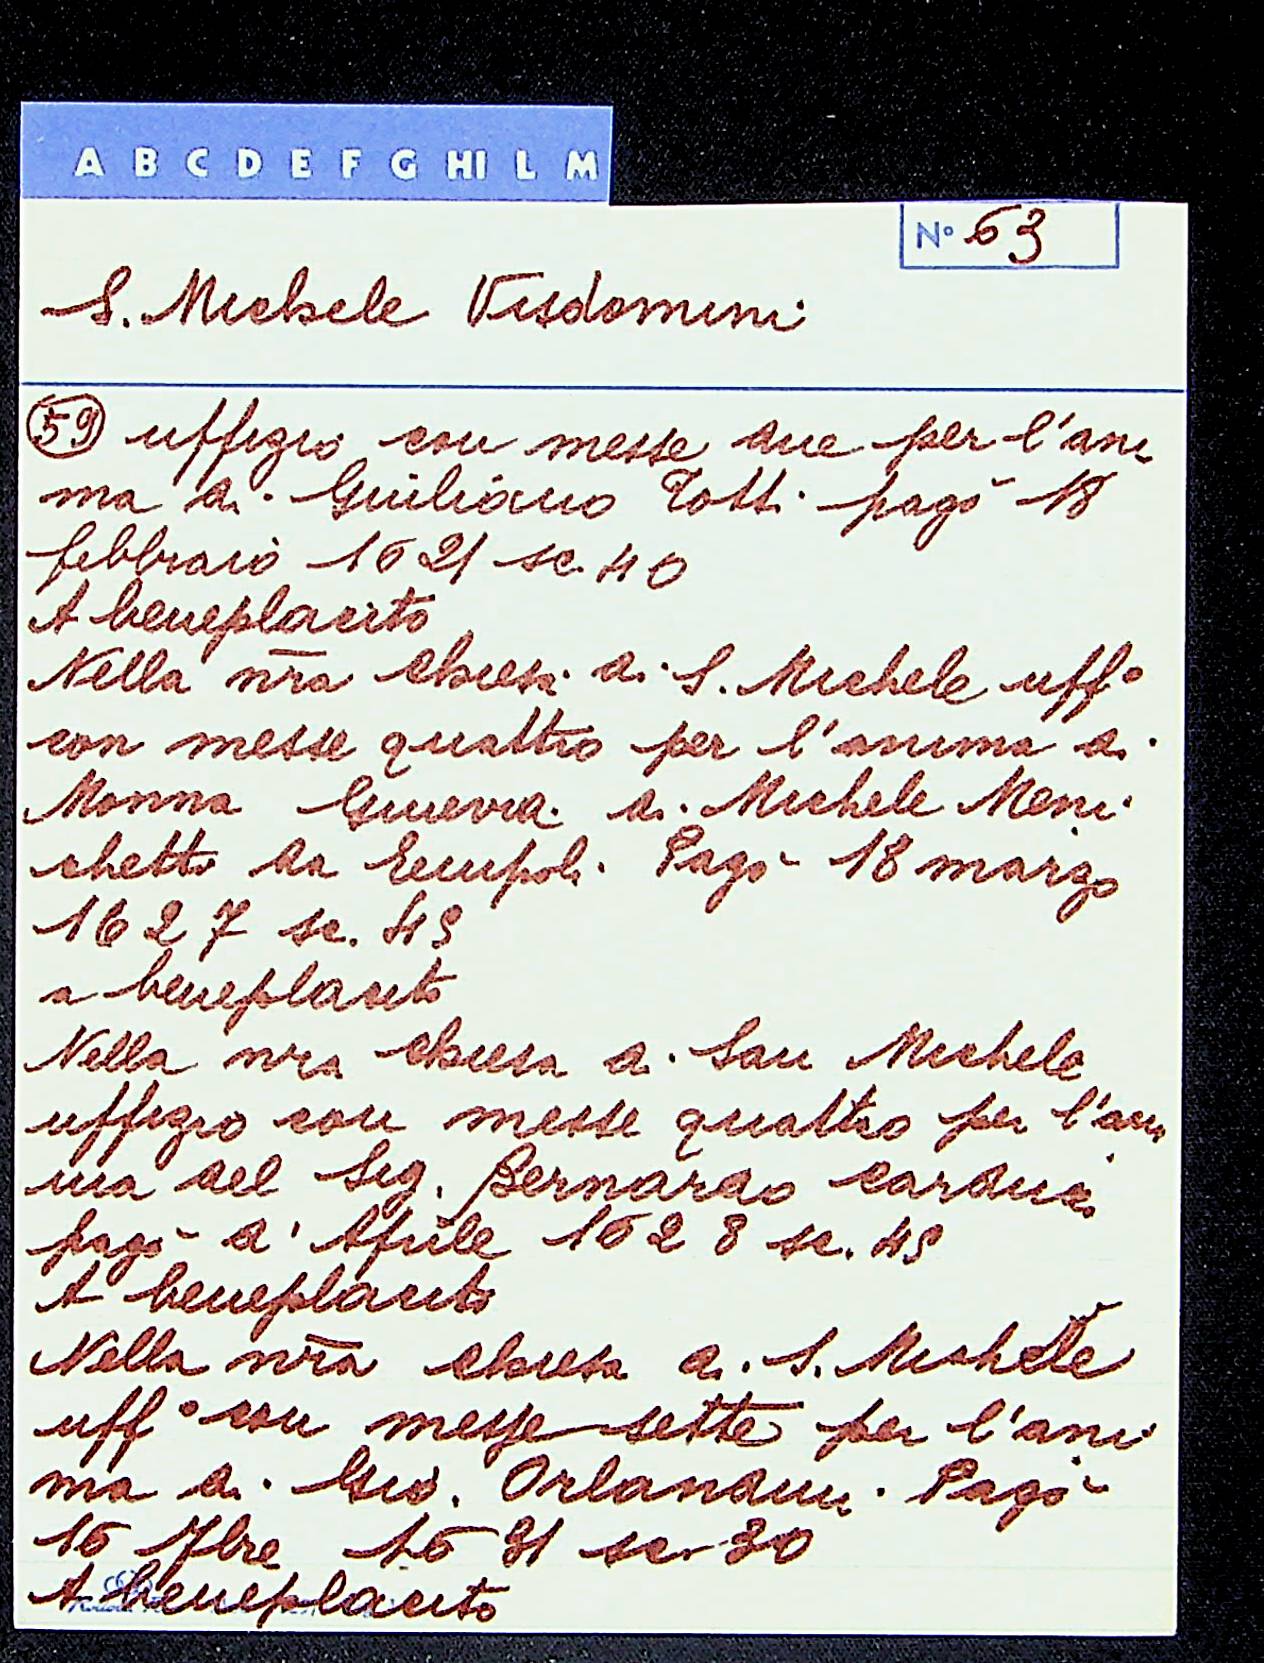 A B C D E F G HI L M
N° 63
S. Michele Visdomini
59 uffizio con messe due per l'ani
ma di Giuliano Totti pagò 18
febbraio 1621 sc. 40
A beneplacito
Nella nr̄a chiesa di S. Michele uff°
con messe quattro per l'anima di
Monna Ginevra di Michele Meni
chetti da Empoli. Pagò 18 marzo
1627 sc. 49
a beneplacito
Nella nra chiesa di San Michele
uffizio con messe quattro per l'ani
ma del Sig. Bernardo Carducci
pagò d' Aprile 1628 sc. 49
A beneplacito
Nella nr̄a chiesa di S. Michele
uff° con messe sette per l'ani
ma di Gio. Orlandini. Pagò
16 7bre 1631 sc. 30
A beneplacito